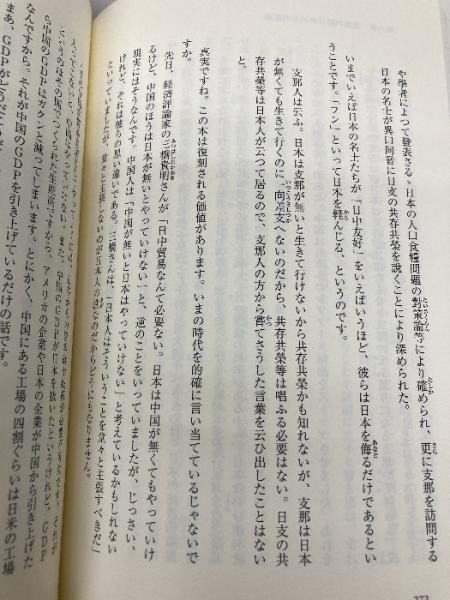 や學者によつて發表さる丶日本の人口食糧問題の對策論等により確められ、更に支那を訪問する
日本の名士が異口同音に日支の共存共榮を說くことにより深められた。
いまでいえば日本の名士たちが「日中友好」をいえばいうほど、彼らは日本を侮るだけであるとい
うことです。「フン」といって日本を軽んじる、というのです。
支那人は云ふ。日本は支那が無いと生きて行けないから共存共榮かも知れないが、支那は日本
が無くても生きて行くのに一向差支へないのだから、共存共榮等は唱ふる必要はない。日支の共
存共榮等は日本人が云つて居るので、支那人の方から嘗てさうした言葉を云ひ出したことはない
と。
真実ですね。この本は復刻される価値があります。いまの時代を的確に言い当てているじゃないで
すか。
先日、経済評論家の三橋貴明さんが「日中貿易なんて必要ない。日本は中国が無くてもやっていけ
るけど、中国のほうは日本が無いとやっていけない」と、逆のことをいっていましたが、じっさい、
現実にはそうなんです。中国人は「中国が無いと日本はやっていけない」と考えているかもしれない
けれど、それは彼らの思い違いである。三橋さんは、「日本人はそういうことを堂々と主張すべきだ」
といっていましたが、堂々と主張しないのが日本人の
また、中国のGDPが日本を抜いたというけれど、GDP
アメリカの企業や日本の企業が中国から引き上げた
ら中国のGDPはガクンと減ってしまいます。とにかく、中国にある工場の四割ぐらいは日米の工場
なんですから、それが中国のGDPを引き上げているだけの話です。
まあ、GDPが